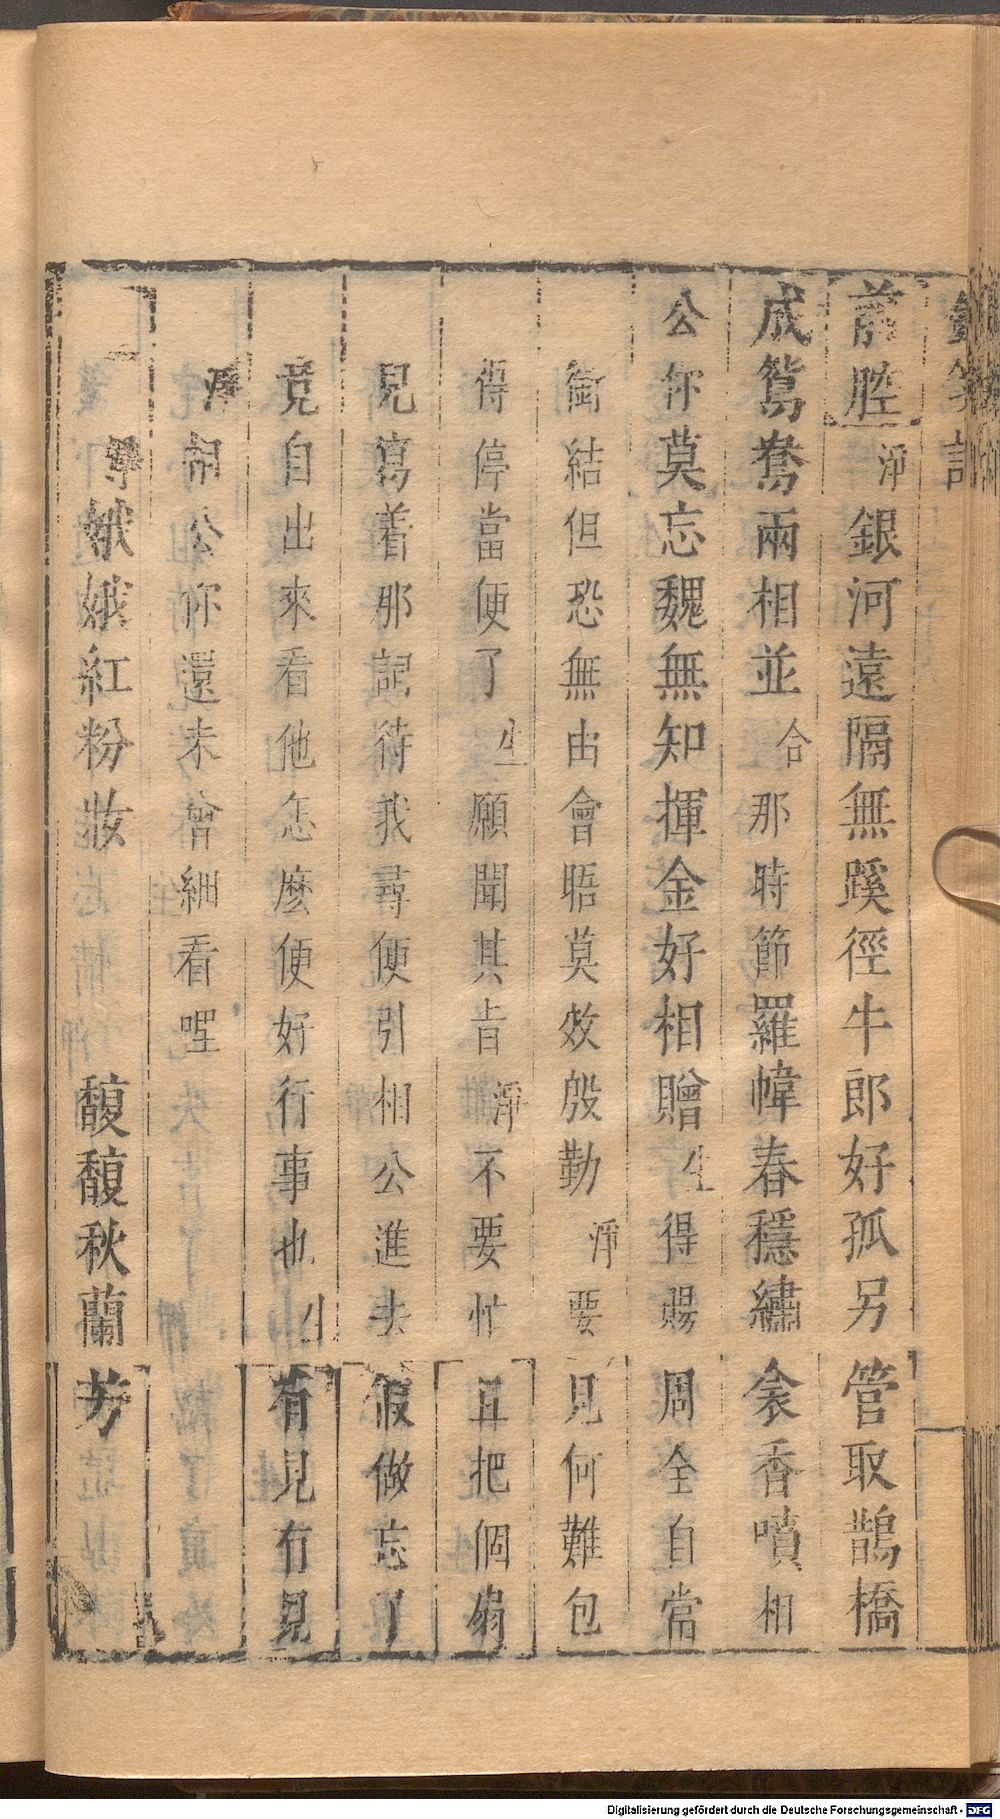 前腔淨銀河遠隔無蹊徑牛郎好孤另管取鵲橋
成鴛鴦兩相並合那時節羅幃春穩繡衾香噴相
公你莫忘魏無知揮金好相贈生得賜周全自當
銜結但恐無由會晤莫效殷勤淨要見何難包
得停當便了生願聞其旨淨不要忙且把個扇
兒寫着那詞待我尋便引相公進去假做忘了
竟自出來看他怎麼便好行事也生有見有見
淨相公你還未曾細看哩
淨娥娥紅粉妝 馥馥秋蘭芳
Digitalisierung gefördert durch die Deutsche Forschungsgemeinschaft - DFG